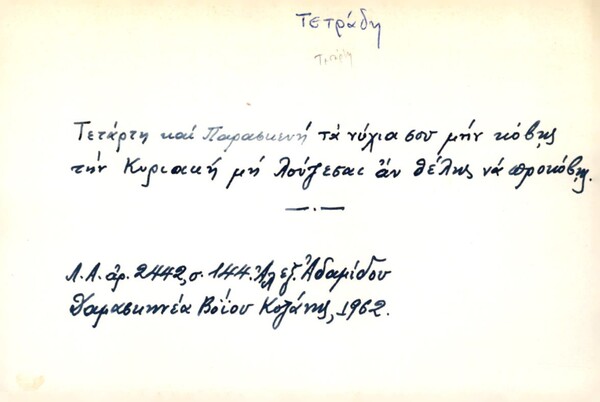 Τετράδη
Τετάρτη και Παρασκευή τά νύχια σου μήν κόβῃς
τήν Κυριακή μή λούζεσαι ἄν θέλῃς νά προκόβῃς.
Λ.Α. ἀρ. 2442, σ. 144. Ἀλεξ. Ἀδαμίδου
Δαμασκηνέα Βοΐου Κοζάνης, 1962.